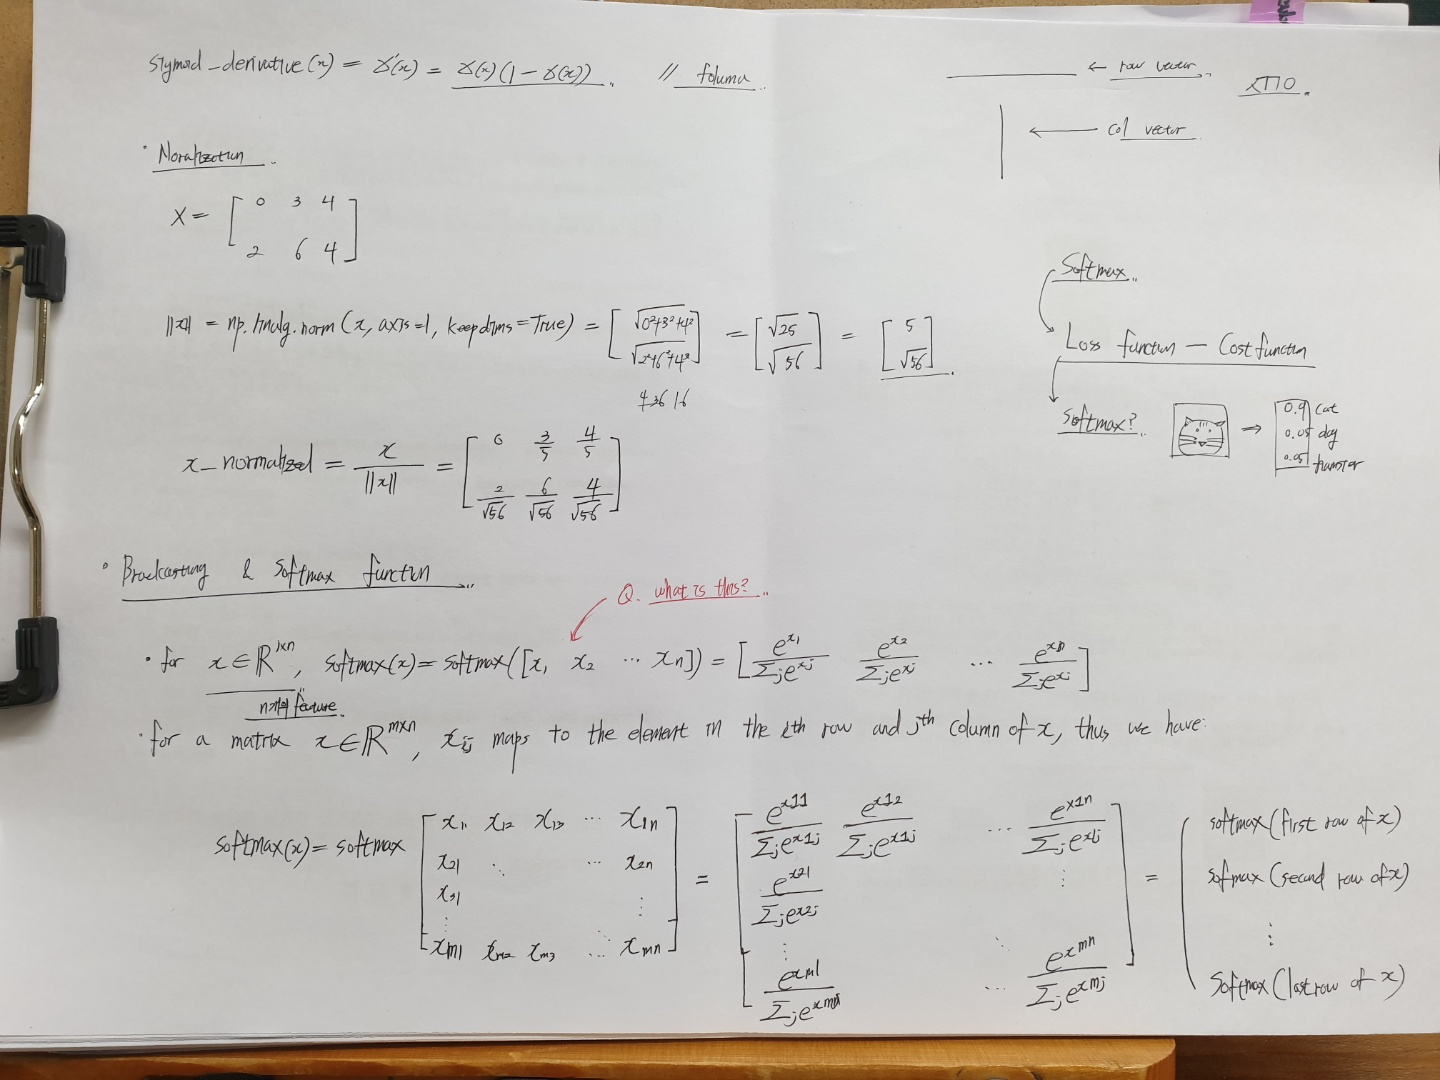 sigmoid_derivative(x) = σ'(x) = σ(x)(1-σ(x)) // foluma
← row vector
← col vector
• Noralization
X = [ 0 3 4
2 6 4 ]
||x|| = np.linalg.norm(x, axis=1, keepdims=True) = [ √0²+3²+4² √2²+6²+4² ] = [ √25 √56 ] = [ 5 √56 ]
4 36 16
x_normalized = x / ||x|| = [ 0 3/5 4/5
2/√56 6/√56 4/√56 ]
Softmax
Loss function - Cost function
softmax?
→ 0.9 cat
0.05 dog
0.05 hamster
• Broadcasting & softmax function
Q. what is this?
• for x ∈ ℝ¹ˣⁿ, softmax(x) = softmax([x₁ x₂ ⋯ xn]) = [ e^x1/Σj e^xj e^x2/Σj e^xj ⋯ e^xn/Σj e^xj ]
n개의 feature
• for a matrix x ∈ ℝᵐˣⁿ, xij maps to the element in the ith row and jth column of x, thus we have:
softmax(x) = softmax [ x11 x12 x13 ⋯ x1n
x21 ⋱ ⋯ x2n
x31 ⋮
⋮
xm1 xm2 xm3 ⋯ xmn ]
= [ e^x11/Σj e^x1j e^x12/Σj e^x1j ⋯ e^x1n/Σj e^x1j
e^x21/Σj e^x2j ⋮
⋮ ⋱
e^xm1/Σj e^xmj ⋯ e^xmn/Σj e^xmj ]
= ( softmax(first row of x)
softmax(second row of x)
⋮
softmax(last row of x)